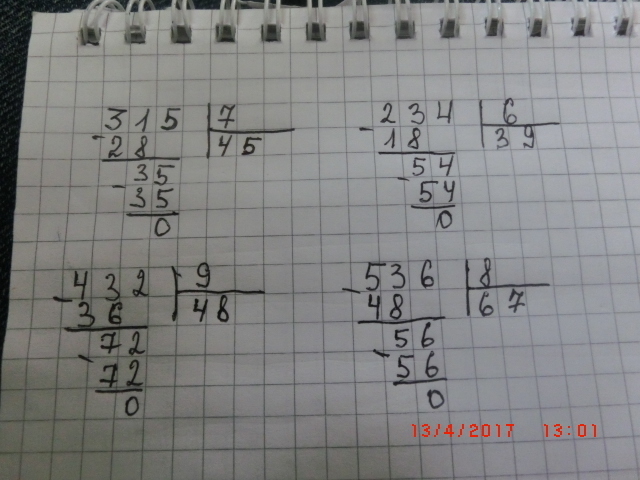 315 | 7
- 28 | 45
- 35
35
0
- 234 | 6
18 | 39
- 54
54
0
- 432 | 9
36 | 48
- 72
72
0
- 536 | 8
48 | 67
- 56
56
0
13/4/2017 13:01